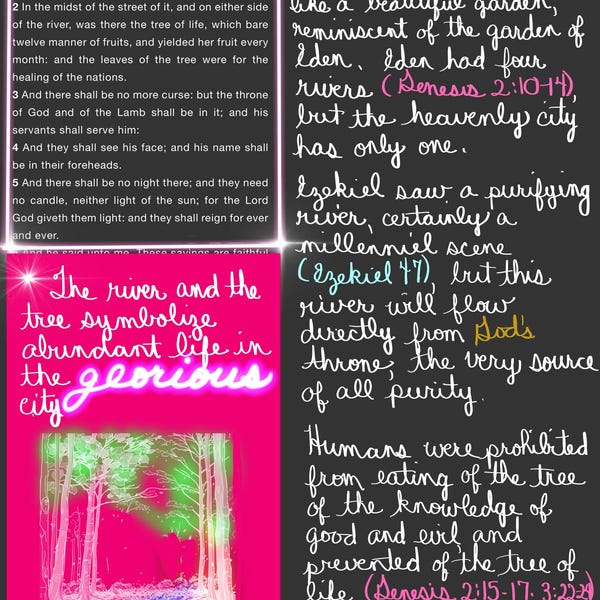 2 In the midst of the street of it, and on either side
of the river, was there the tree of life, which bare
twelve manner of fruits, and yielded her fruit every
month: and the leaves of the tree were for the
healing of the nations.
3 And there shall be no more curse: but the throne
of God and of the Lamb shall be in it; and his
servants shall serve him:
4 And they shall see his face; and his name shall
be in their foreheads.
5 And there shall be no night there; and they need
no candle, neither light of the sun; for the Lord
God giveth them light: and they shall reign for ever
and ever.
And he said unto me, These sayings are faithful
The river and the
tree symbolize
abundant life in
the georious
city
like a beautiful garden,
reminiscent of the garden of
Eden. Eden had four
rivers (Genesis 2:10-14),
but the heavenly city
has only one.
Ezekiel saw a purifying
river, certainly a
millenniel scene
(Ezekiel 47), but this
river will flow
directly from God's
throne, the very source
of all purity.
Humans were prohibited
from eating of the tree
of the knowledge of
good and evil and
prevented of the tree of
life (Genesis 2:15-17, 3:22-24)